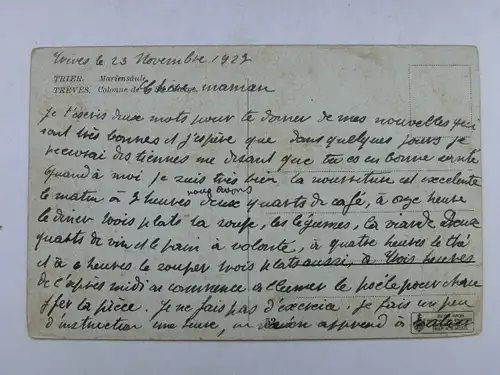 Trèves le 23 Novembre 1922
TRIER. Mariensäule
TRÈVES. Colonne de
Chère maman
Je t'écris deux mots pour te donner de mes nouvelles qui
sont très bonnes et j'espère que dans quelques jours je
recevrai des tiennes me disant que tu es en bonne santé
quand à moi je suis très bien la nourriture est excelente
le matin à 7 heures nous avons deux quarts de café, à onze heure
le diner trois plats la soupe, les légumes, la viande deux
quarts de vin et le pain à volonté, à quatre heures le thé
et à 6 heures le souper trois plats aussi, à trois heures
de l'après midi on commence a allumer le poele pour chau
ffer la pièce. Je ne fais pas d'exercice. Je fais un peu
d'instruction une heure, on apprend à